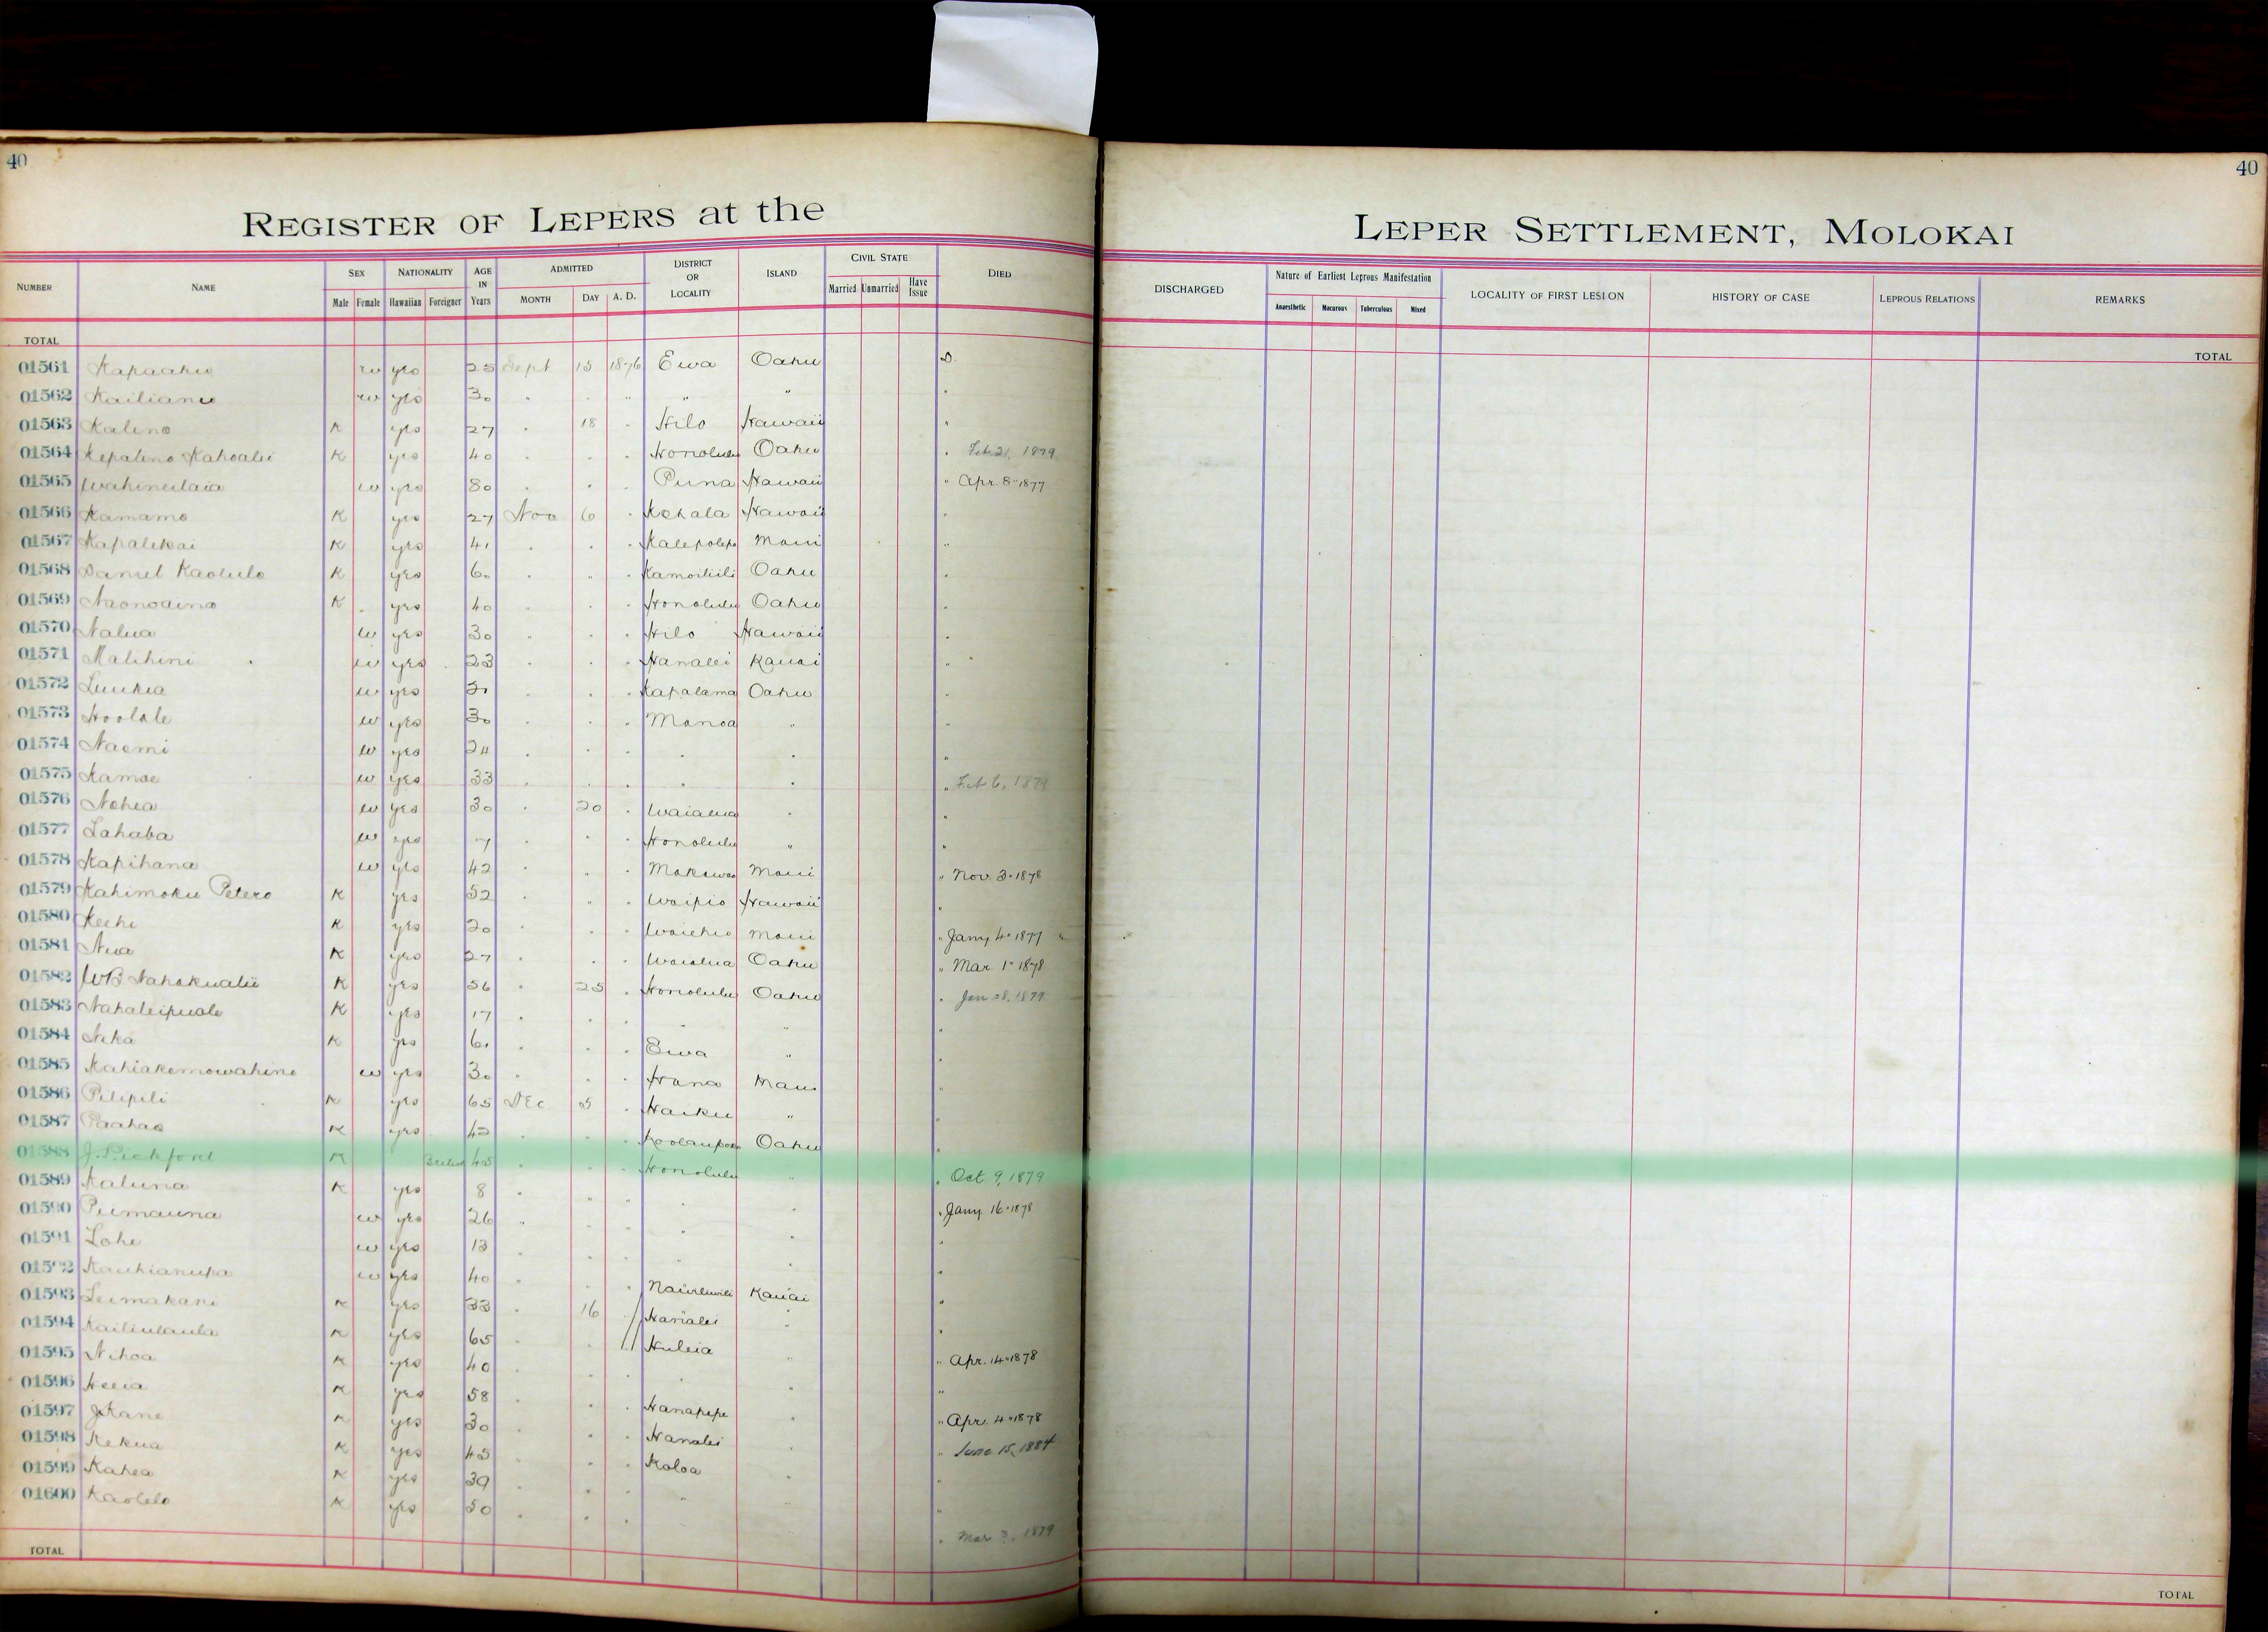 40
REGISTER OF LEPERS at the
NUMBER NAME SEX Male Female NATIONALITY Hawaiian Foreigner AGE IN Years ADMITTED MONTH DAY A. D. DISTRICT OR LOCALITY ISLAND CIVIL STATE Married Unmarried Have Issue DIED
TOTAL
01561 Kapaahu w yes 25 Sept 15 1876 Ewa Oahu D.
01562 Kailianu w yes 30 " " " " " "
01563 Kalino K yes 27 " 18 " Hilo Hawaii "
01564 Kepalino Kahoalii K yes 40 " " " Honolulu Oahu " Feb 21, 1879
01565 Wahineilaia w yes 80 " " " Puna Hawaii " Apr. 8 - 1877
01566 Kamamo K yes 27 Nov 6 " Kohala Hawaii "
01567 Kapalikai K yes 41 " " " Kalepolepo Maui "
01568 Daniel Kaolulo K yes 60 " " " Kamoiliili Oahu "
01569 Naonoaina K yes 40 " " " Honolulu Oahu "
01570 Nalua w yes 30 " " " Hilo Hawaii "
01571 Malihini w yes 23 " " " Hanalei Kauai "
01572 Luukia w yes " " " Kapalama Oahu "
01573 Hoolale w yes 30 " " " Manoa " "
01574 Naomi w yes 24 " " " " " "
01575 Kamae w yes 33 " " " " " " Feb 6, 1879
01576 Nohea w yes 30 " 20 " Waialua " "
01577 Lahaba w yes 7 " " " Honolulu " "
01578 Kapihana w yes 42 " " " Makawao Maui " Nov. 3 - 1878
01579 Kahimoku Petero K yes 52 " " " Waipio Hawaii "
01580 Keehi K yes 20 " " " Waiehu Maui " Jany 4 - 1877
01581 Niua K yes 27 " " " Waialua Oahu " Mar. 1 - 1878
01582 WB Nahokualii K yes 56 " 25 " Honolulu Oahu " Jan 28, 1879
01583 Nahaleipuale K yes 17 " " " " " "
01584 Nika K yes 61 " " " Ewa " "
01585 Kahiakemowahine w yes 30 " " " Hana Maui "
01586 Pilipili K yes 65 Dec 5 " Haiku " "
01587 Paahao K yes 42 " " " Koolaupoko Oahu "
01588 J. Pickford K British 45 " " " Honolulu " " Oct 9, 1879
01589 Kaluna K yes 8 " " " " " " Jany 16 - 1878
01590 Piimauna w yes 26 " " " " " "
01591 Lohe w yes 13 " " " " " "
01592 Kauhianupa w yes 40 " " " Nawiliwili Kauai "
01593 Leimakani K yes 33 " 16 " Hanalei " "
01594 Kailiulaula K yes 65 " " " Huleia " " Apr. 14 - 1878
01595 Nihoa K yes 40 " " " " " "
01596 Heeia K yes 58 " " " Hanapepe " " Apr. 4 - 1878
01597 J Kane K yes 30 " " " Hanalei " " June 15, 1884
01598 Kekua K yes 45 " " " Koloa " "
01599 Kahea K yes 39 " " " " " "
01600 Kaolelo K yes 50 " " " " Mar 3, 1879
TOTAL
40
LEPER SETTLEMENT, MOLOKAI
DISCHARGED Nature of Earliest Leprous Manifestation Anaesthetic Macurous Tuberculous Mixed LOCALITY OF FIRST LESION HISTORY OF CASE LEPROUS RELATIONS REMARKS
TOTAL
TOTAL